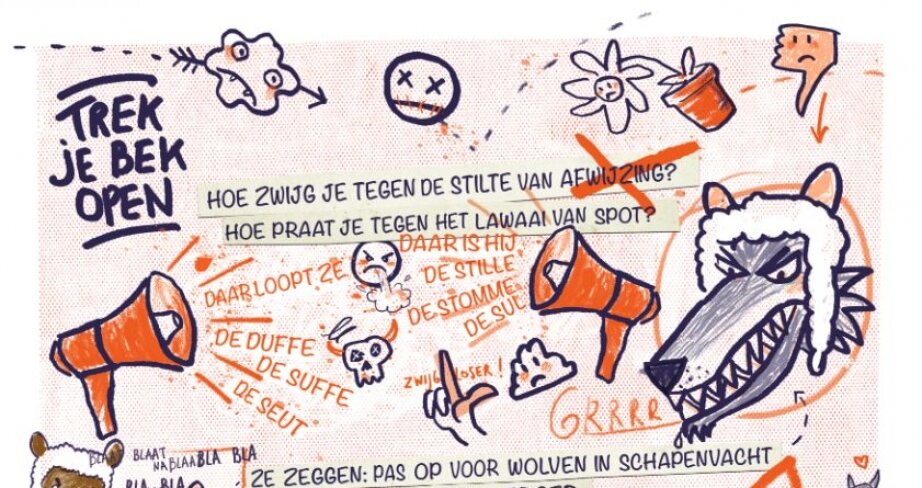 TREK
JE BEK
OPEN
HOE ZWIJG JE TEGEN DE STILTE VAN AFWIJZING?
HOE PRAAT JE TEGEN HET LAWAAI VAN SPOT?
DAAR LOOPT ZE
DE DUFFE
DE SUFFE
DE SEUT
DAAR IS HIJ
DE STILLE
DE STOMME
DE SUL
ZWIJG LOSER!
GRRRR
BLAAT BLAAT
NABLAABLA BLA
BLA-BLA
ZE ZEGGEN: PAS OP VOOR WOLVEN IN SCHAPENVACHT